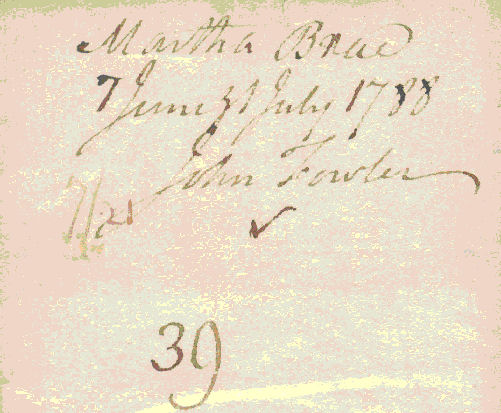 Martha Brae
7 June 31 July 1788
John Fowler
39